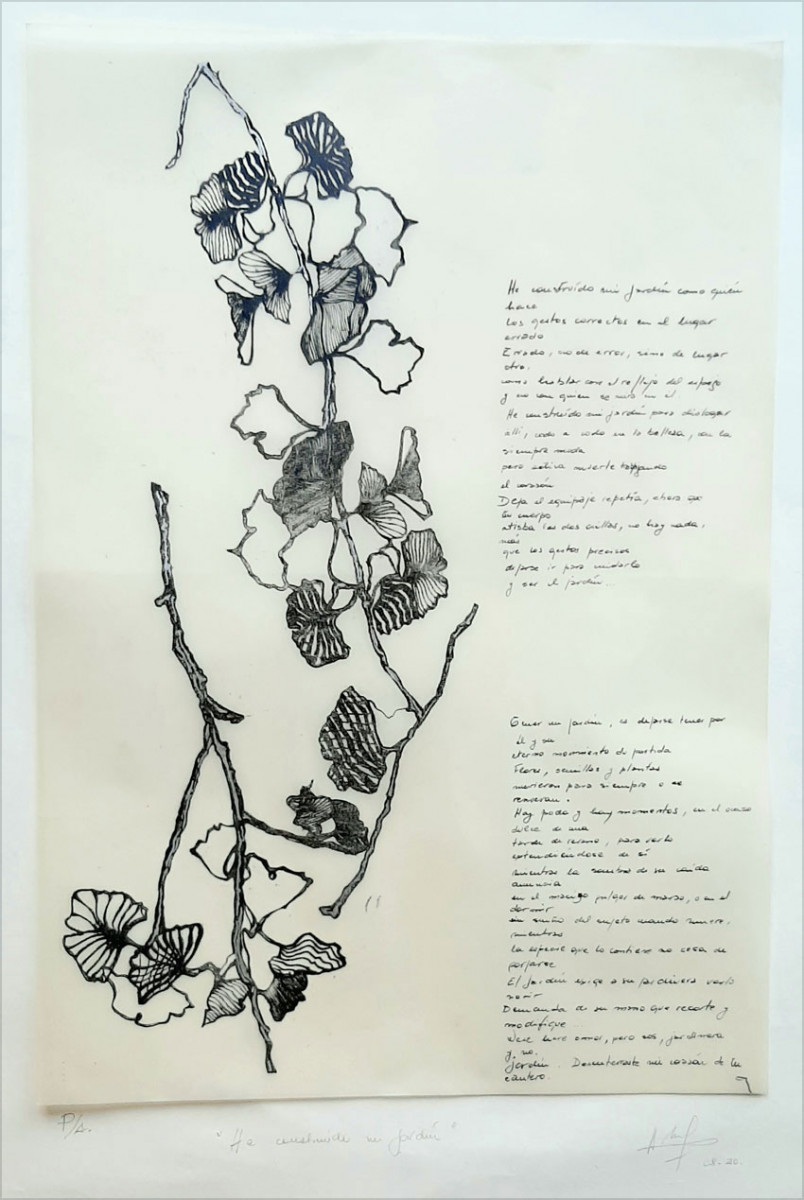 He construido un jardín como quién
hace
Los gestos correctos en el lugar
errado
Errado, no de error, sino de lugar
otro.
como hablar con el reflejo del espejo
y no con quien se mira en el.
He construido un jardín para dialogar
allí, codo a codo en la belleza, con la
siempre muda
pero activa muerte
el corazón
Deja el equipaje repetía, ahora que
tu cuerpo
atisba las dos orillas, no hay nada,
más
que los gestos precisos
dejarse ir para cuidarlo
y ser el jardín...
un jardín, es dejarse tener por
él y su
eterno movimiento de partida
Flores, semillas y plantas
mueren para siempre o se
renuevan.
Hay poda y hay momentos, en el ocaso
dulce de una
tarde de verano, para verlo
de sí
mientras la sombra de su caida
anuncia
en el de marzo, o en el
dormir
sin sueño del sujeto cuando muere,
mientras
la especie que lo contiene no cesa de
forjarse
El jardín exige a su jardinera verlo
morir
Demanda de su mano que recorte y
modifique...
amor, pero sos, jardinera
y no
jardín. mi corazón de tu
cantero.
P/A.
"He construido un jardín"